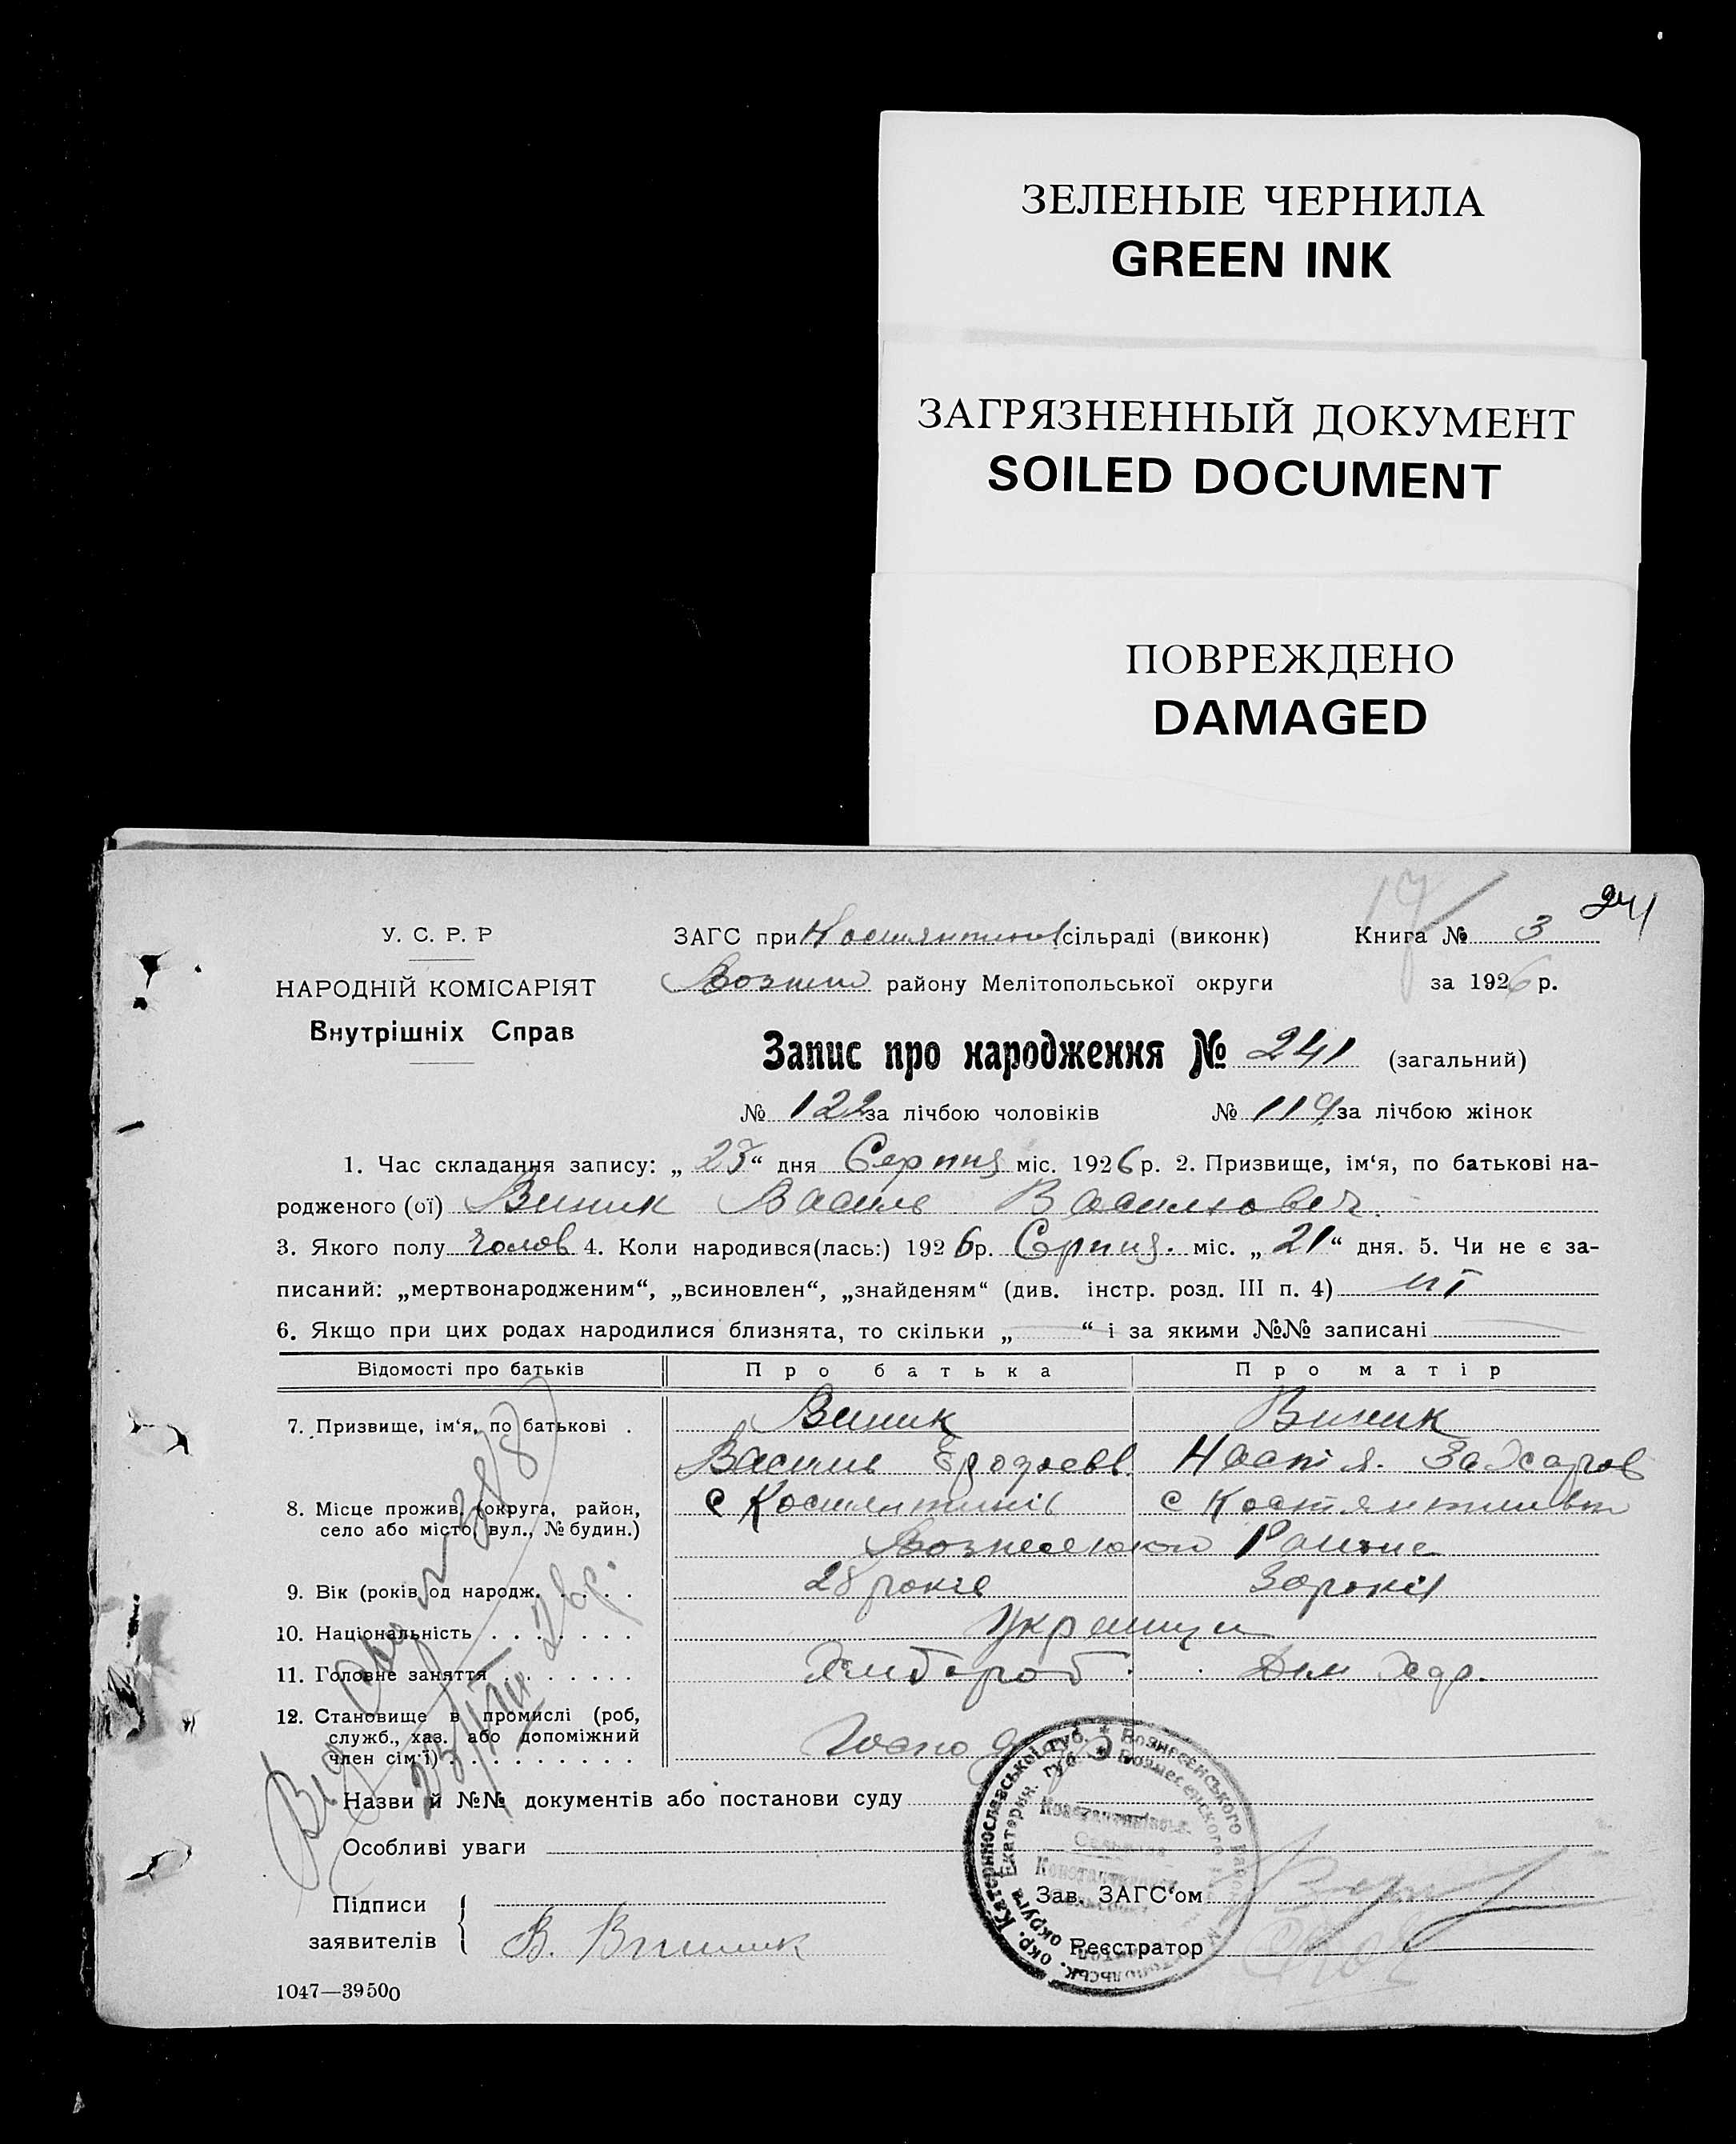 ЗЕЛЕНЫЕ ЧЕРНИЛА
GREEN INK
ЗАГРЯЗНЕННЫЙ ДОКУМЕНТ
SOILED DOCUMENT
ПОВРЕЖДЕНО
DAMAGED
241
У. С. Р. Р
НАРОДНІЙ КОМІСАРІЯТ
Внутрішніх Справ
ЗАГС при Костянтинов сільраді (виконк)
Книга № 3
району Мелітопольської округи
за 1926 р.
Запис про народження № 241 (загальний)
№ 122 за лічбою чоловіків № 119 за лічбою жінок
1. Час складання запису: „ 23 “ дня Серпня міс. 1926 р. 2. Призвище, ім‘я, по батькові на-
родженого (ої) Виник Василь Васильович.
3. Якого полу Чолов 4. Коли народився(лась:) 1926 р. Серпня міс. „ 21 “ дня. 5. Чи не є за-
писаний: „мертвонародженим“, „всиновлен“, „знайденям“ (див. інстр. розд. III п. 4) ні
6. Якщо при цих родах народилися близнята, то скільки „ “ і за якими №№ записані
Відомості про батьків Про батька Про матір
7. Призвище, ім‘я, по батькові . Виник Виник
Василь Настя Захаров
8. Місце прожив. (округа, район,
село або місто, вул., № будин.)
с Костянтинів с Костянтинівка
9. Вік (років од народж. . . . . 28 років 30 років
10. Національність . . . . . . . Українці
11. Головне заняття . . . . . . . Хлібороб Дом
12. Становище в промислі (роб,
служб., хаз. або допоміжний
член сім‘ї) . . . . . . . . . .
Назви й №№ документів або постанови суду
Особливі уваги
Підписи
заявителів
В. Виник
Зав. ЗАГС‘ом
Реєстратор
1047—39500